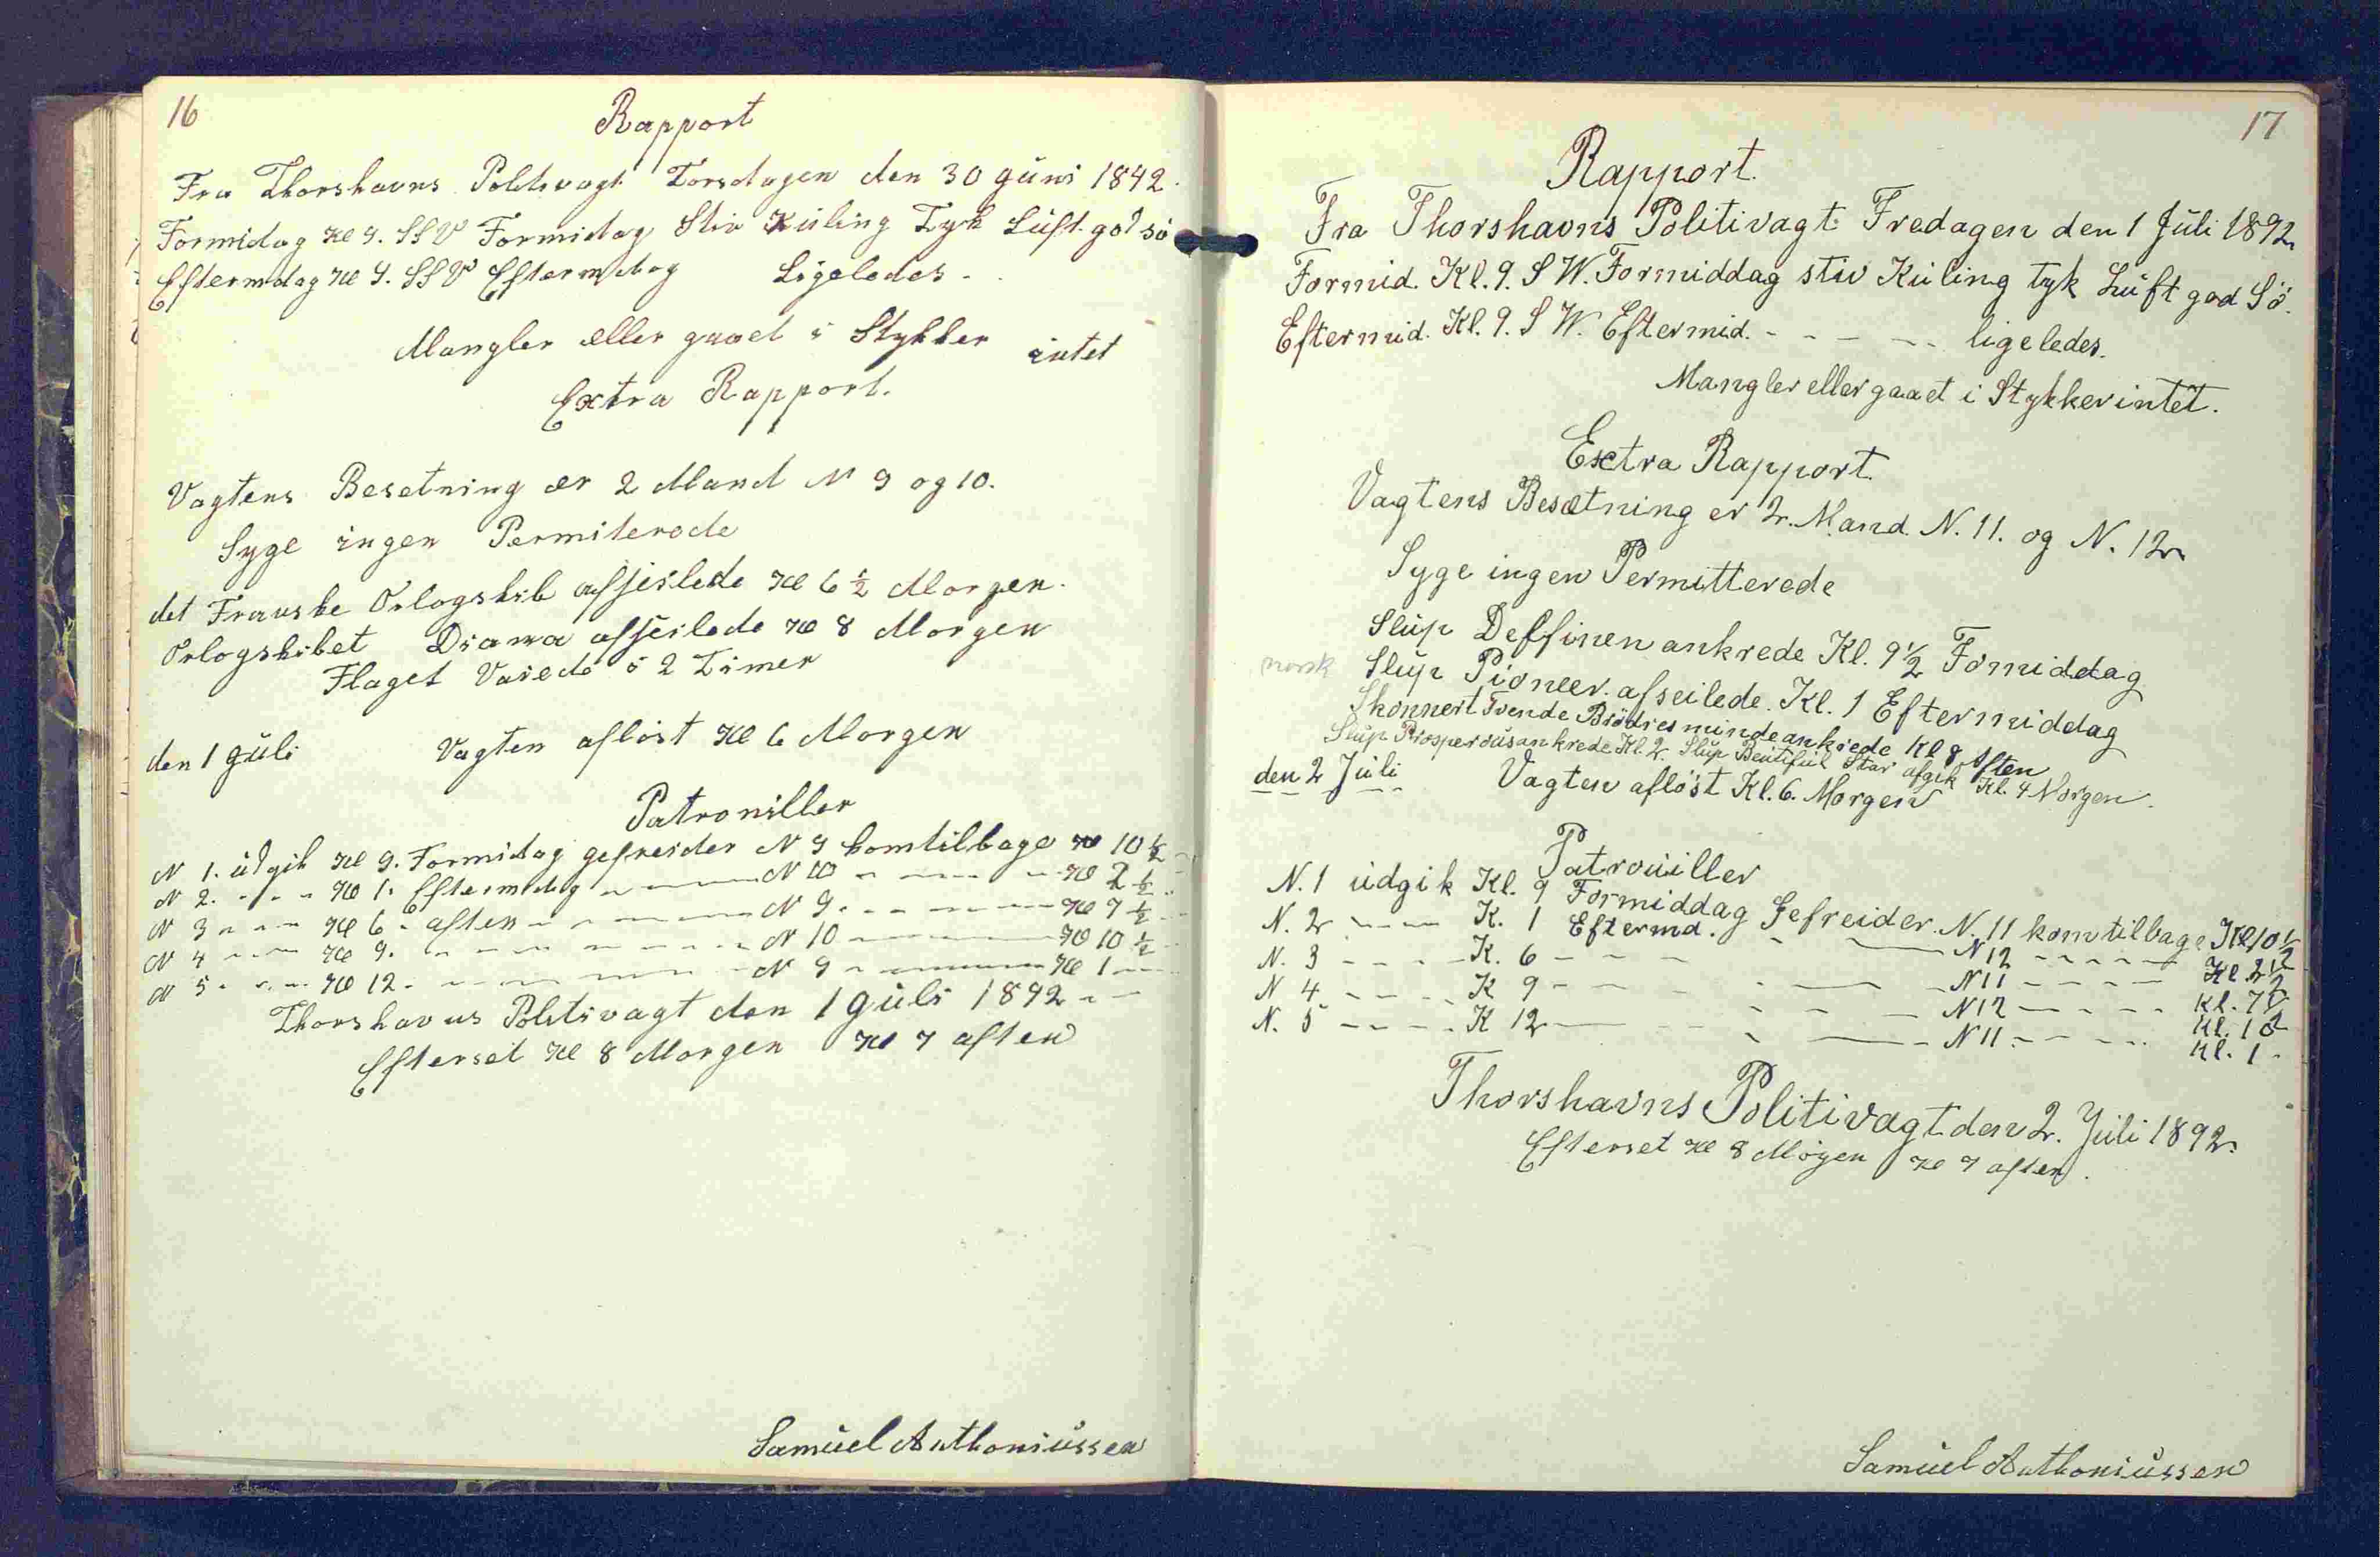 16
Rapport
Fra Thorshavns Politivagt Torsdagen den 30 Juni 1892.
Formidag Kl 9. SSV Formidag Stiv Kuling Tyk Luft god sö
Eftermdag Kl 9. SSV Eftermdag Ligeledes -
Mangler eller gaaet i Stykker intet
Extra Rapport.
Vagtens Besetning er 2 Mand N 9 og 10.
Syge ingen Permiterede
det Franske Orlogskib afseilede Kl 6 ½ Morgen.
Orlogskibet Diana afseilede Kl 8 Morgen
Flaget Vaiede i 2 Timer
den 1 Juli Vagten aflöst Kl 6 Morgen
Patrouiller
N 1. udgik Kl 9. Formidag gefreider N 9 komtilbage Kl 10 ½
N 2. - - - Kl 1. Eftermdag - - - N 10 - - - Kl 2 ½
N 3 - - - Kl 6 - aften - - - N 9. - - - Kl 7 ½
N 4 - - - Kl 9. - - - N 10 - - - Kl 10 ½
N 5 - - - Kl 12 - - - - N 9 - - - Kl 1 - -
Thorshavns Politivagt den 1 Juli 1892 - -
Efterset Kl 8 Morgen Kl 7 aften
Samuel Anthoniussen
17
Rapport.
Fra Thorshavns Politivagt Fredagen den 1 Juli 1892
Formid. Kl. 9. S W. Formiddag stiv Kuling tyk Luft god Sö.
Eftermid. Kl. 9. S W. Eftermid. - - - - - ligeledes.
Mangler eller gaaet i Stykker intet.
Extra Rapport.
Vagtens Besætning er 2. Mand. N. 11. og N. 12
Syge ingen Permitterede
Slup Deffinen ankrede Kl. 9½ Fomiddag
norsk Slup Pioneer. afseilede. Kl. 1 Eftermiddag
Skonnert Tvende Brödres minde ankrede Kl 8 Aften
Slup Prosperous ankrede Kl. 2. Slup Beutifuil Star afgik Kl. 4 Morgen.
den 2 Juli Vagten aflöst Kl. 6. Morgen
Patrouiller
N. 1 udgik Kl. 9 Formiddag Gefreider. N. 11 kom tilbage Kl 10 ½
N. 2 - - - K. 1 Eftermd. - - N 12 - - - - Kl 2 ½
N. 3 - - - - K. 6 - - - - - N 11 - - - - Kl. 7 ½
N 4 - - - - K 9 - - - - - N 12 - - - - Kl. 10
N. 5 - - - - K 12 - - - - N 11 - - - - Kl. 1 -
Thorshavns Politivagt den 2. Juli 1892.
Efterset Kl 8 Mogen Kl 7 aften.
Samuel Anthoniussen